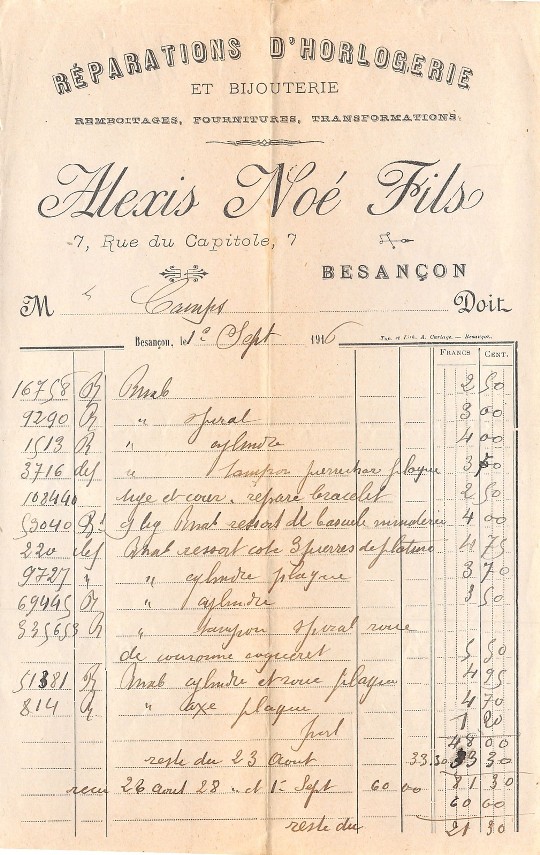 RÉPARATIONS D'HORLOGERIE
ET BIJOUTERIE
REMBOITAGES, FOURNITURES, TRANSFORMATIONS
Alexis Noé Fils
7, Rue du Capitole, 7
BESANÇON
M Camps Doit
Besançon, le 1er Sept 1916
Imp. et Lith. A. Cariage. — Besançon.
FRANCS CENT.
16758 R Rhab 2 50
9290 R " spiral 3 00
1513 R " cylindre 4 00
3716 clef " tampon plaque 3
108440 tige et cour. repare bracelet 2 50
53040 Rhab ressort de bascule 4 00
220 clef Rhab ressort cote 3 pierres de platine 4 75
9727 " " cylindre plaque 3 70
69445 R " cylindre 3 50
335653 R " tampon spiral roue
de couronne coqueret 5 50
51381 R Rhab cylindre et roue plaque 4 95
814 R " axe plaque 4 70
port 1 20
48 00
reste du 23 Aout 33.30 33 30
recu 26 aout 28 " et 1er Sept 60 00 81 30
60 00
reste du 21 30